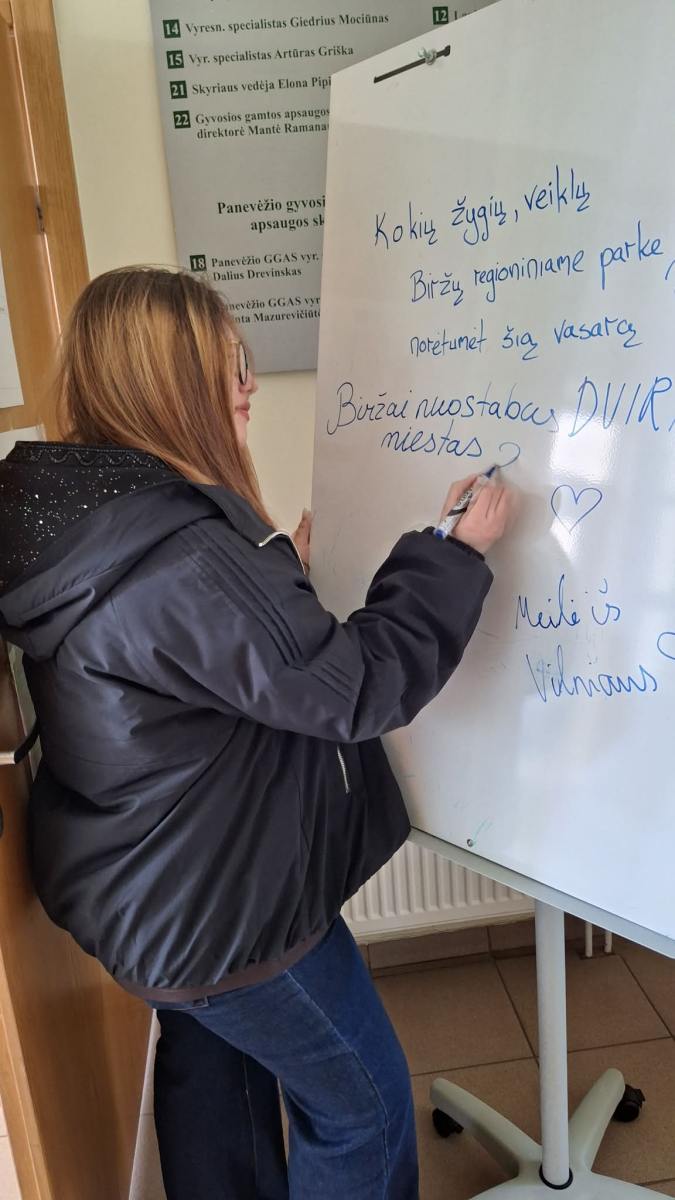 14 Vyresn. specialistas Giedrius Mociūnas
15 Vyr. specialistas Artūras Griška
21 Skyriaus vedėja Elona Pipi
22 Gyvosios gamtos apsaugos
direktorė Mantė Ramana
12
Panevėžio gyvosi
apsaugos sk
18 Panevėžio GGAS vyr.
Dalius Drevinskas
nevėžio GGAS vyr
nta Mazurevičiūtė
Kokių žygių, veiklų
Biržų regioniniame parke
norėtumėt šią vasarą
Biržai nuostabus DVIR
miestas
Meilė iš
Vilniaus